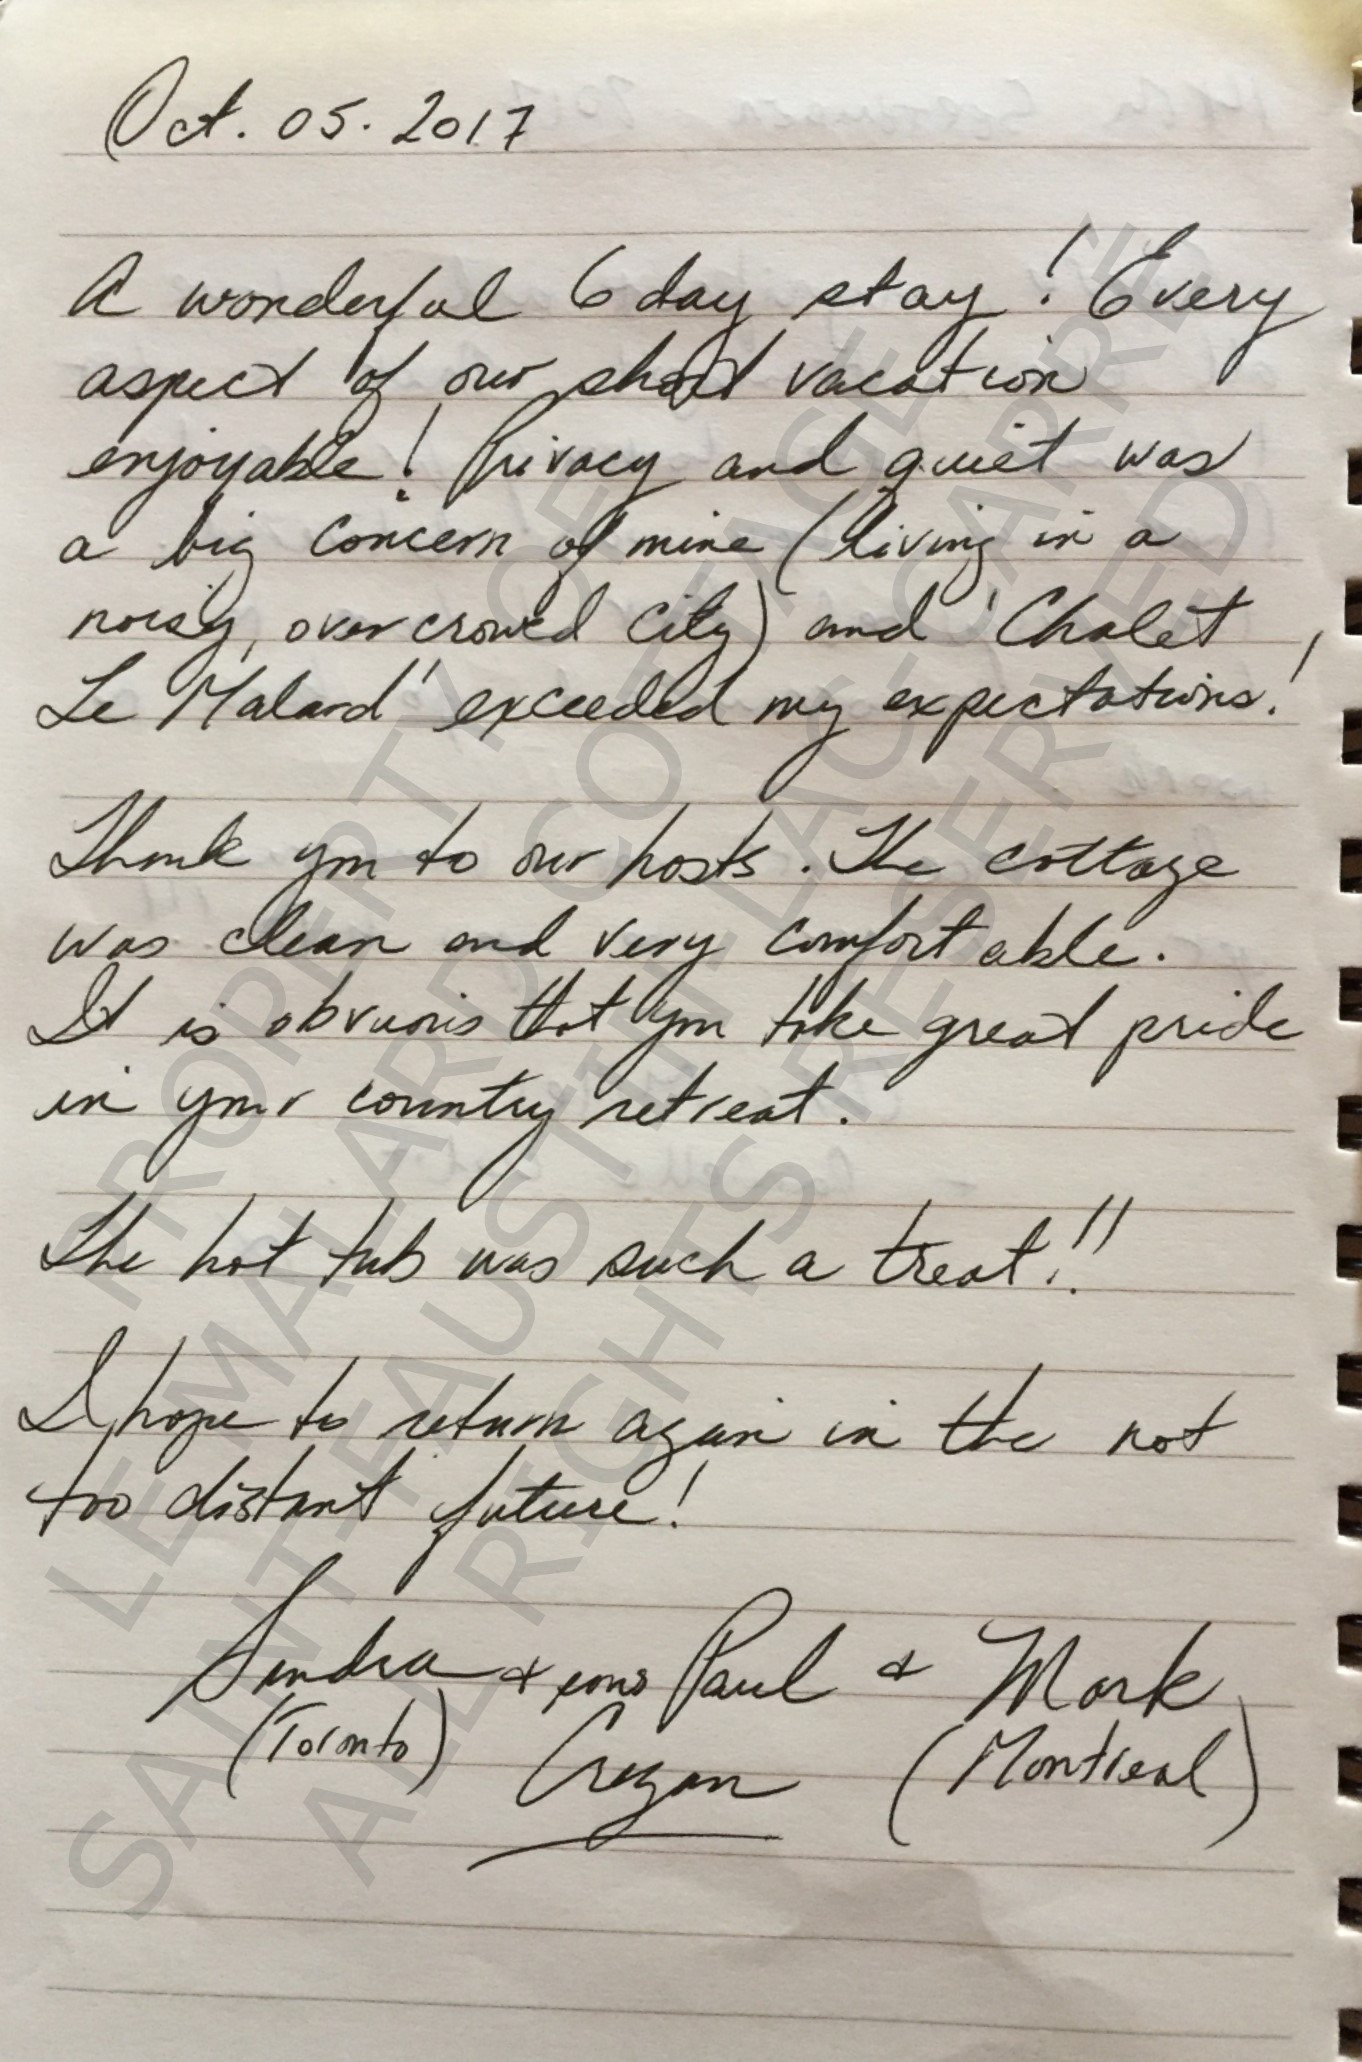 Oct. 05. 2017
A wonderful 6 day stay! Every
aspect of our short vacation
enjoyable! Privacy and quiet was
a big concern of mine (living in a
noisy, overcrowed city) and 'Chalet
Le Malard' exceeded my expectations!
Thank you to our hosts. The cottage
was clean and very comfortable.
It is obvious that you take great pride
in your country retreat.
The hot tub was such a treat!!
I hope to return again in the not
too distant future!
Sandra + sons Paul + Mark
(Toronto) (Montreal)
PROPERTY OF
LE MALARD COTTAGE
SAINT-FAUSTIN-LAC-CARRÉ
ALL RIGHTS RESERVED